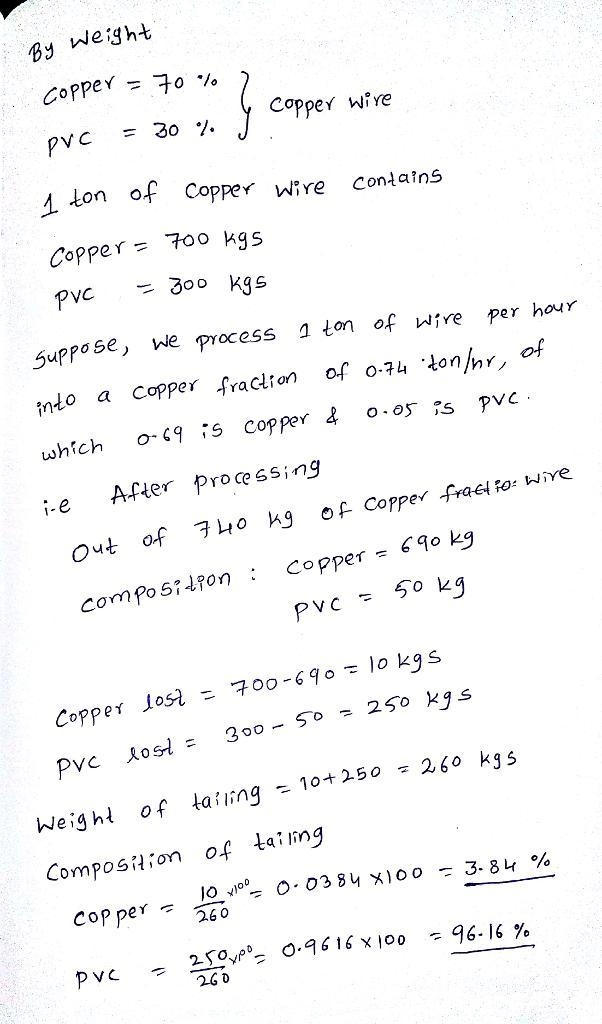 By weight
Copper = 70 %
PVC = 30 % } Copper wire
1 ton of Copper wire contains
Copper = 700 kgs
PVC = 300 kgs
Suppose, we process 1 ton of wire per hour
into a copper fraction of 0.74 ton/hr, of
which 0.69 is copper & 0.05 is PVC.
i.e After processing
Out of 740 kg of Copper fraction wire
composition : Copper = 690 kg
PVC = 50 kg
Copper lost = 700-690 = 10 kgs
PVC lost = 300 - 50 = 250 kgs
Weight of tailing = 10+250 = 260 kgs
Composition of tailing
Copper = 10/260 x100 = 0.0384 x100 = 3.84 %
PVC = 250/260 x100 = 0.9616 x 100 = 96.16 %